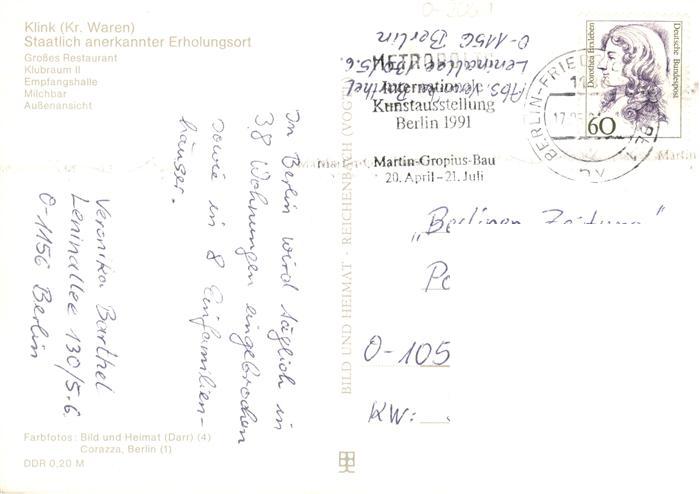 Klink (Kr. Waren)
Staatlich anerkannter Erholungsort
Großes Restaurant
Klubraum II
Empfangshalle
Milchbar
Außenansicht
In Berlin wird täglich in
38 Wohnungen eingebrochen
sowie in 8 Einfamilien-
häuser.
Veronika Barthel
Leninallee 130/5.6.
O-1156 Berlin
Farbfotos: Bild und Heimat (Darr) (4)
Corazza, Berlin (1)
DDR 0,20 M
BILD UND HEIMAT · REICHENBACH (VOGTL
Abs. Veronika Barthel
Leninallee 130/5.6.
O-1156 Berlin
METROPOLIS
Internationale
Kunstausstellung
Berlin 1991
Martin-Gropius-Bau
20. April–21. Juli
BERLIN-FRIED
Dorothea Erxleben
Deutsche Bundespost
60
Martin
„Berliner Zeitung"
O-105
KW: